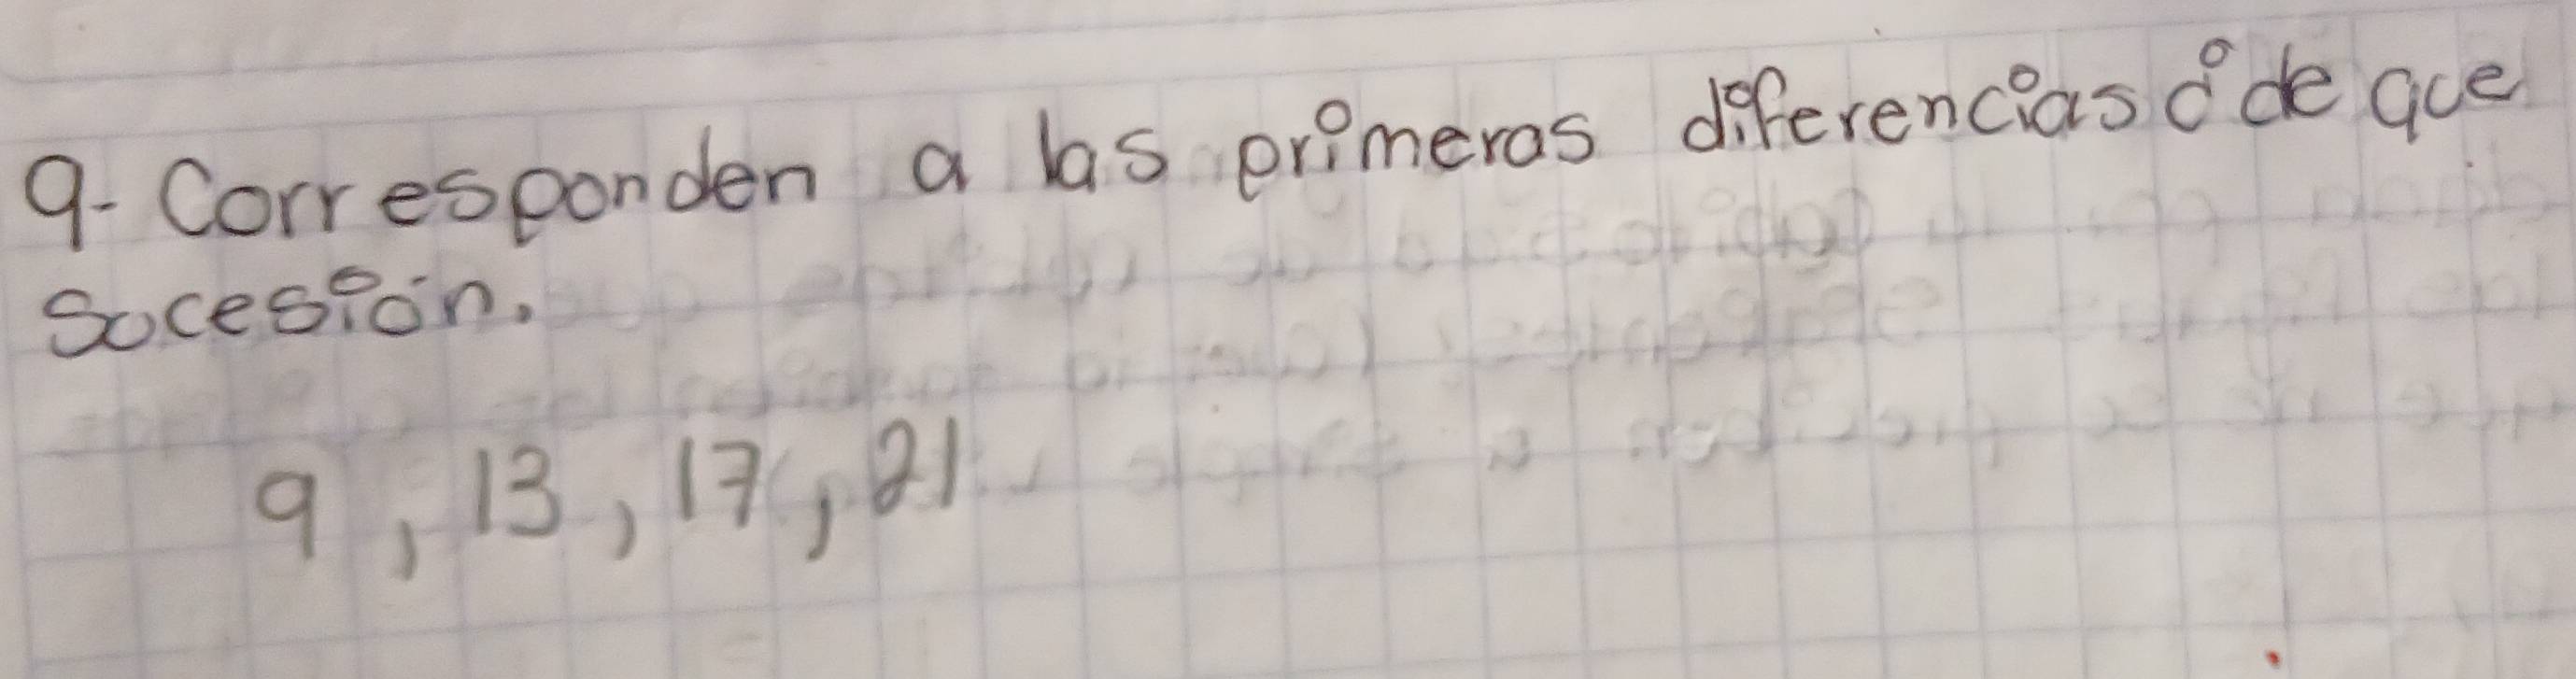 9- Corresponden a las primeras diferencias d de que
sucesión.
9, 13, 17, 21